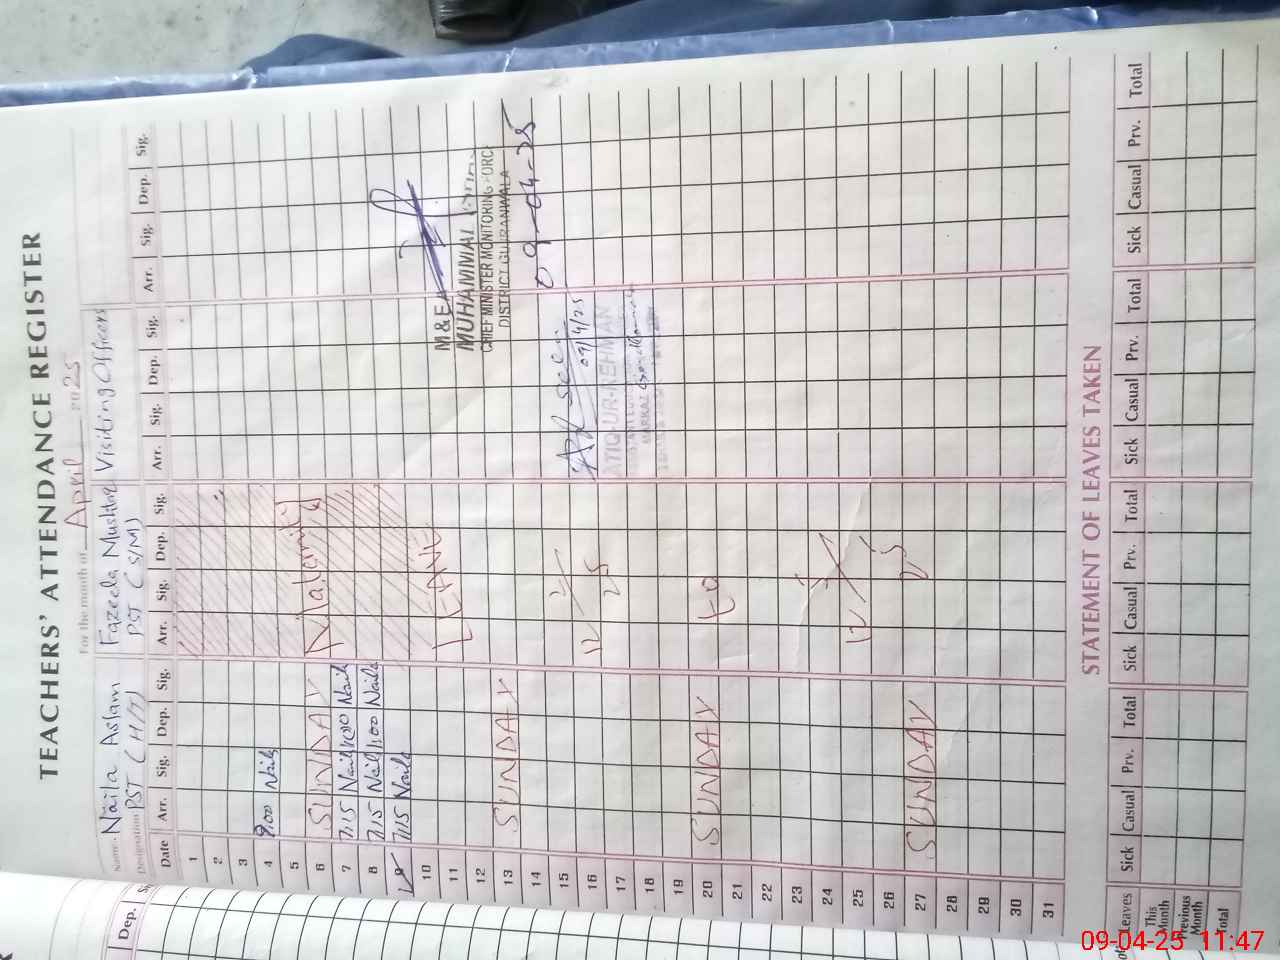 TEACHERS' ATTENDANCE REGISTER
For the month of April 2025
Name. Naila Aslam Fazeela Mushtaq Visiting Officers
Designation PST (H/T) PST (S/M)
Date Arr. Sig. Dep. Sig. Arr. Sig. Dep. Sig. Arr. Sig. Dep. Sig. Arr. Sig. Dep. Sig.
1
2
3
4 9.00 Naila
5
6 SUNDAY Maternity
7 7.15 Naila 1.00 Naila
8 7.15 Naila 1.00 Naila
9 7.15 Naila
10
11 LEAVE
12
13 SUNDAY
14
15
16
17
18
19
20 SUNDAY to
21
22
23
24
25
26
27 SUNDAY
28
29
30
31
M & EA
MUHAMMAD
CHIEF MINISTER MONITORING FORCE
DISTRICT GUJRANWALA
09-04-25
AR seen
09/4/25
ATIQ-UR-REHMAN
MARKAZ
STATEMENT OF LEAVES TAKEN
Leaves Sick Casual Prv. Total Sick Casual Prv. Total Sick Casual Prv. Total Sick Casual Prv. Total
This Month
Previous Month
Total
Dep.
09-04-25 11:47